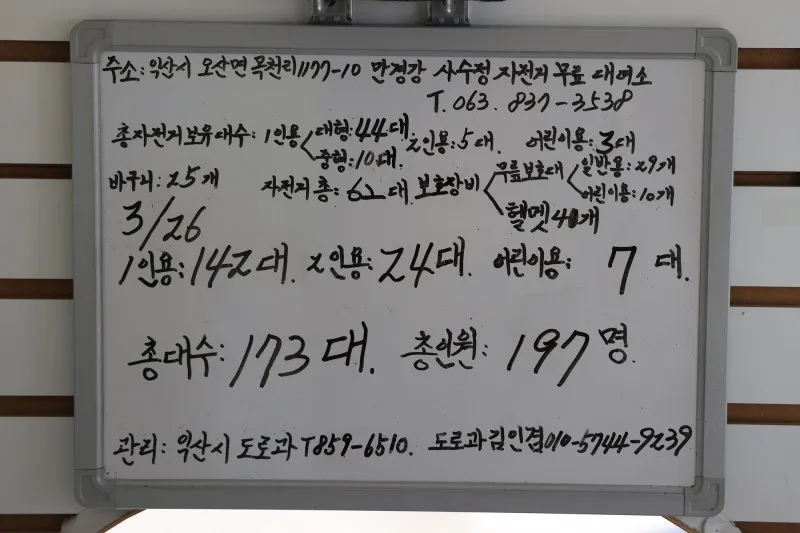 주소: 익산시 오산면 목천리 1177-10 만경강 사수정 자전거 무료 대여소
T. 063. 837-3538
총 자전거 보유대수: 1인용 대형: 44대. 2인용: 5대. 어린이용: 3대
중형: 10대.
바구니: 25개 자전거 총: 62대. 보호장비 무릎보호대 일반용: 29개
어린이용: 10개
헬멧 40개
3/26
1인용: 142대. 2인용: 24대. 어린이용: 7대.
총대수: 173대. 총인원: 197명.
관리: 익산시 도로과 T859-6510. 도로과 김인겸 010-5744-9239